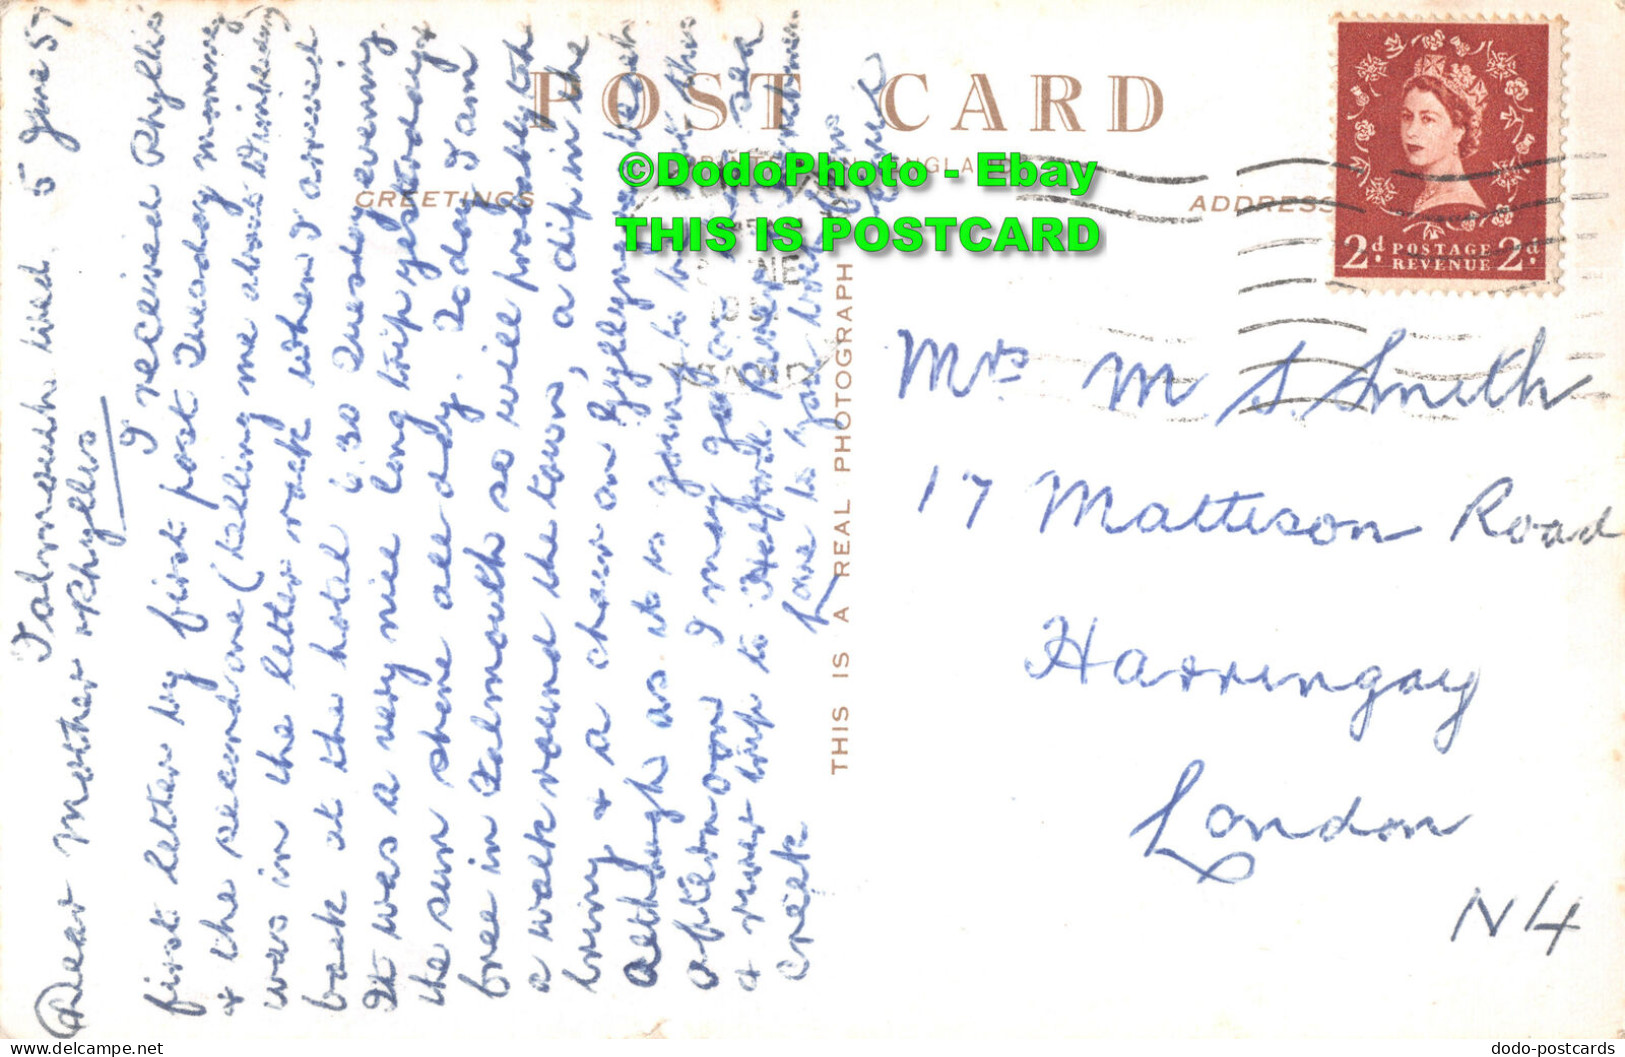 POST CARD
GREETINGS
ADDRESS
©DodoPhoto - Ebay
THIS IS POSTCARD
THIS IS A REAL PHOTOGRAPH
2d POSTAGE 2d
REVENUE
Falmouth Wed. 5 June 57
Dear Mother & Phyllis
I received Phyllis
first letter by first post Tuesday morning
& the second one (telling me about
was in the letter rack when I arrived
back at the hotel 6.30 Tuesday evening.
It was a very nice long trip yesterday &
the sun shone all day. Today I am
free in Falmouth so will probably take
a walk round the town, a dip in the
briny & a chair on Gyllyngvase beach
although as it is going to be hot this
afternoon I may go for a sea
& river trip to Helford River &
creek
Love to you both from
Mrs M S. Smith
17 Mattison Road
Harringay
London
N4
dodo-postcards
delcampe.net